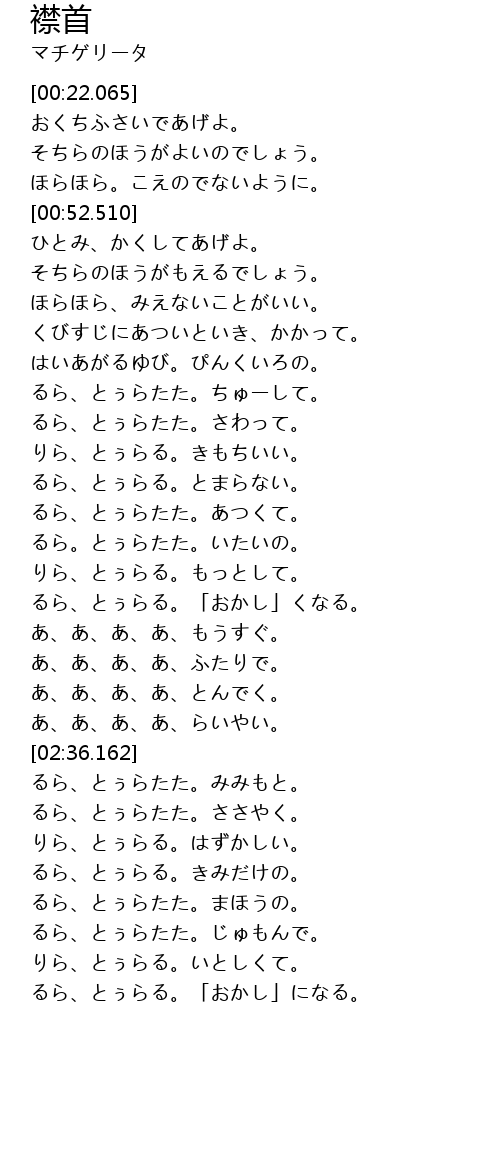 襟首
マチゲリータ
[00:22.065]
おくちふさいであげよ。
そちらのほうがよいのでしょう。
ほらほら。こえのでないように。
[00:52.510]
ひとみ、かくしてあげよ。
そちらのほうがもえるでしょう。
ほらほら、みえないことがいい。
くびすじにあついといき、かかって。
はいあがるゆび。ぴんくいろの。
るら、とぅらたた。ちゅーして。
るら、とぅらたた。さわって。
りら、とぅらる。きもちいい。
るら、とぅらる。とまらない。
るら、とぅらたた。あつくて。
るら。とぅらたた。いたいの。
りら、とぅらる。もっとして。
るら、とぅらる。「おかし」くなる。
あ、あ、あ、あ、もうすぐ。
あ、あ、あ、あ、ふたりで。
あ、あ、あ、あ、とんでく。
あ、あ、あ、あ、らいやい。
[02:36.162]
るら、とぅらたた。みみもと。
るら、とぅらたた。ささやく。
りら、とぅらる。はずかしい。
るら、とぅらる。きみだけの。
るら、とぅらたた。まほうの。
るら、とぅらたた。じゅもんで。
りら、とぅらる。いとしくて。
るら、とぅらる。「おかし」になる。